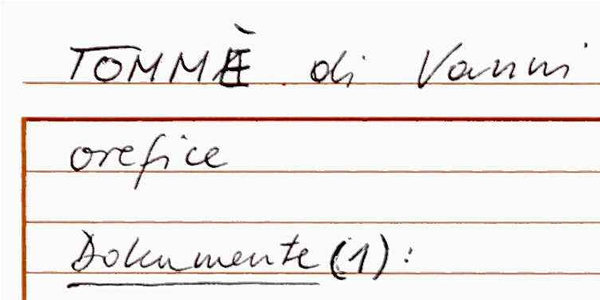 TOMMÈ di Vanni
orefice
Dokumente (1):